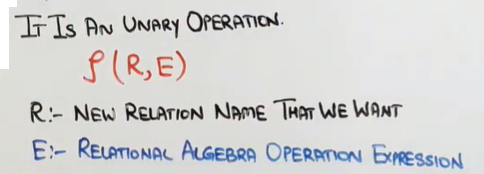 IT IS AN UNARY OPERATION.
ρ(R,E)
R:- NEW RELATION NAME THAT WE WANT
E:- RELATIONAL ALGEBRA OPERATION EXPRESSION